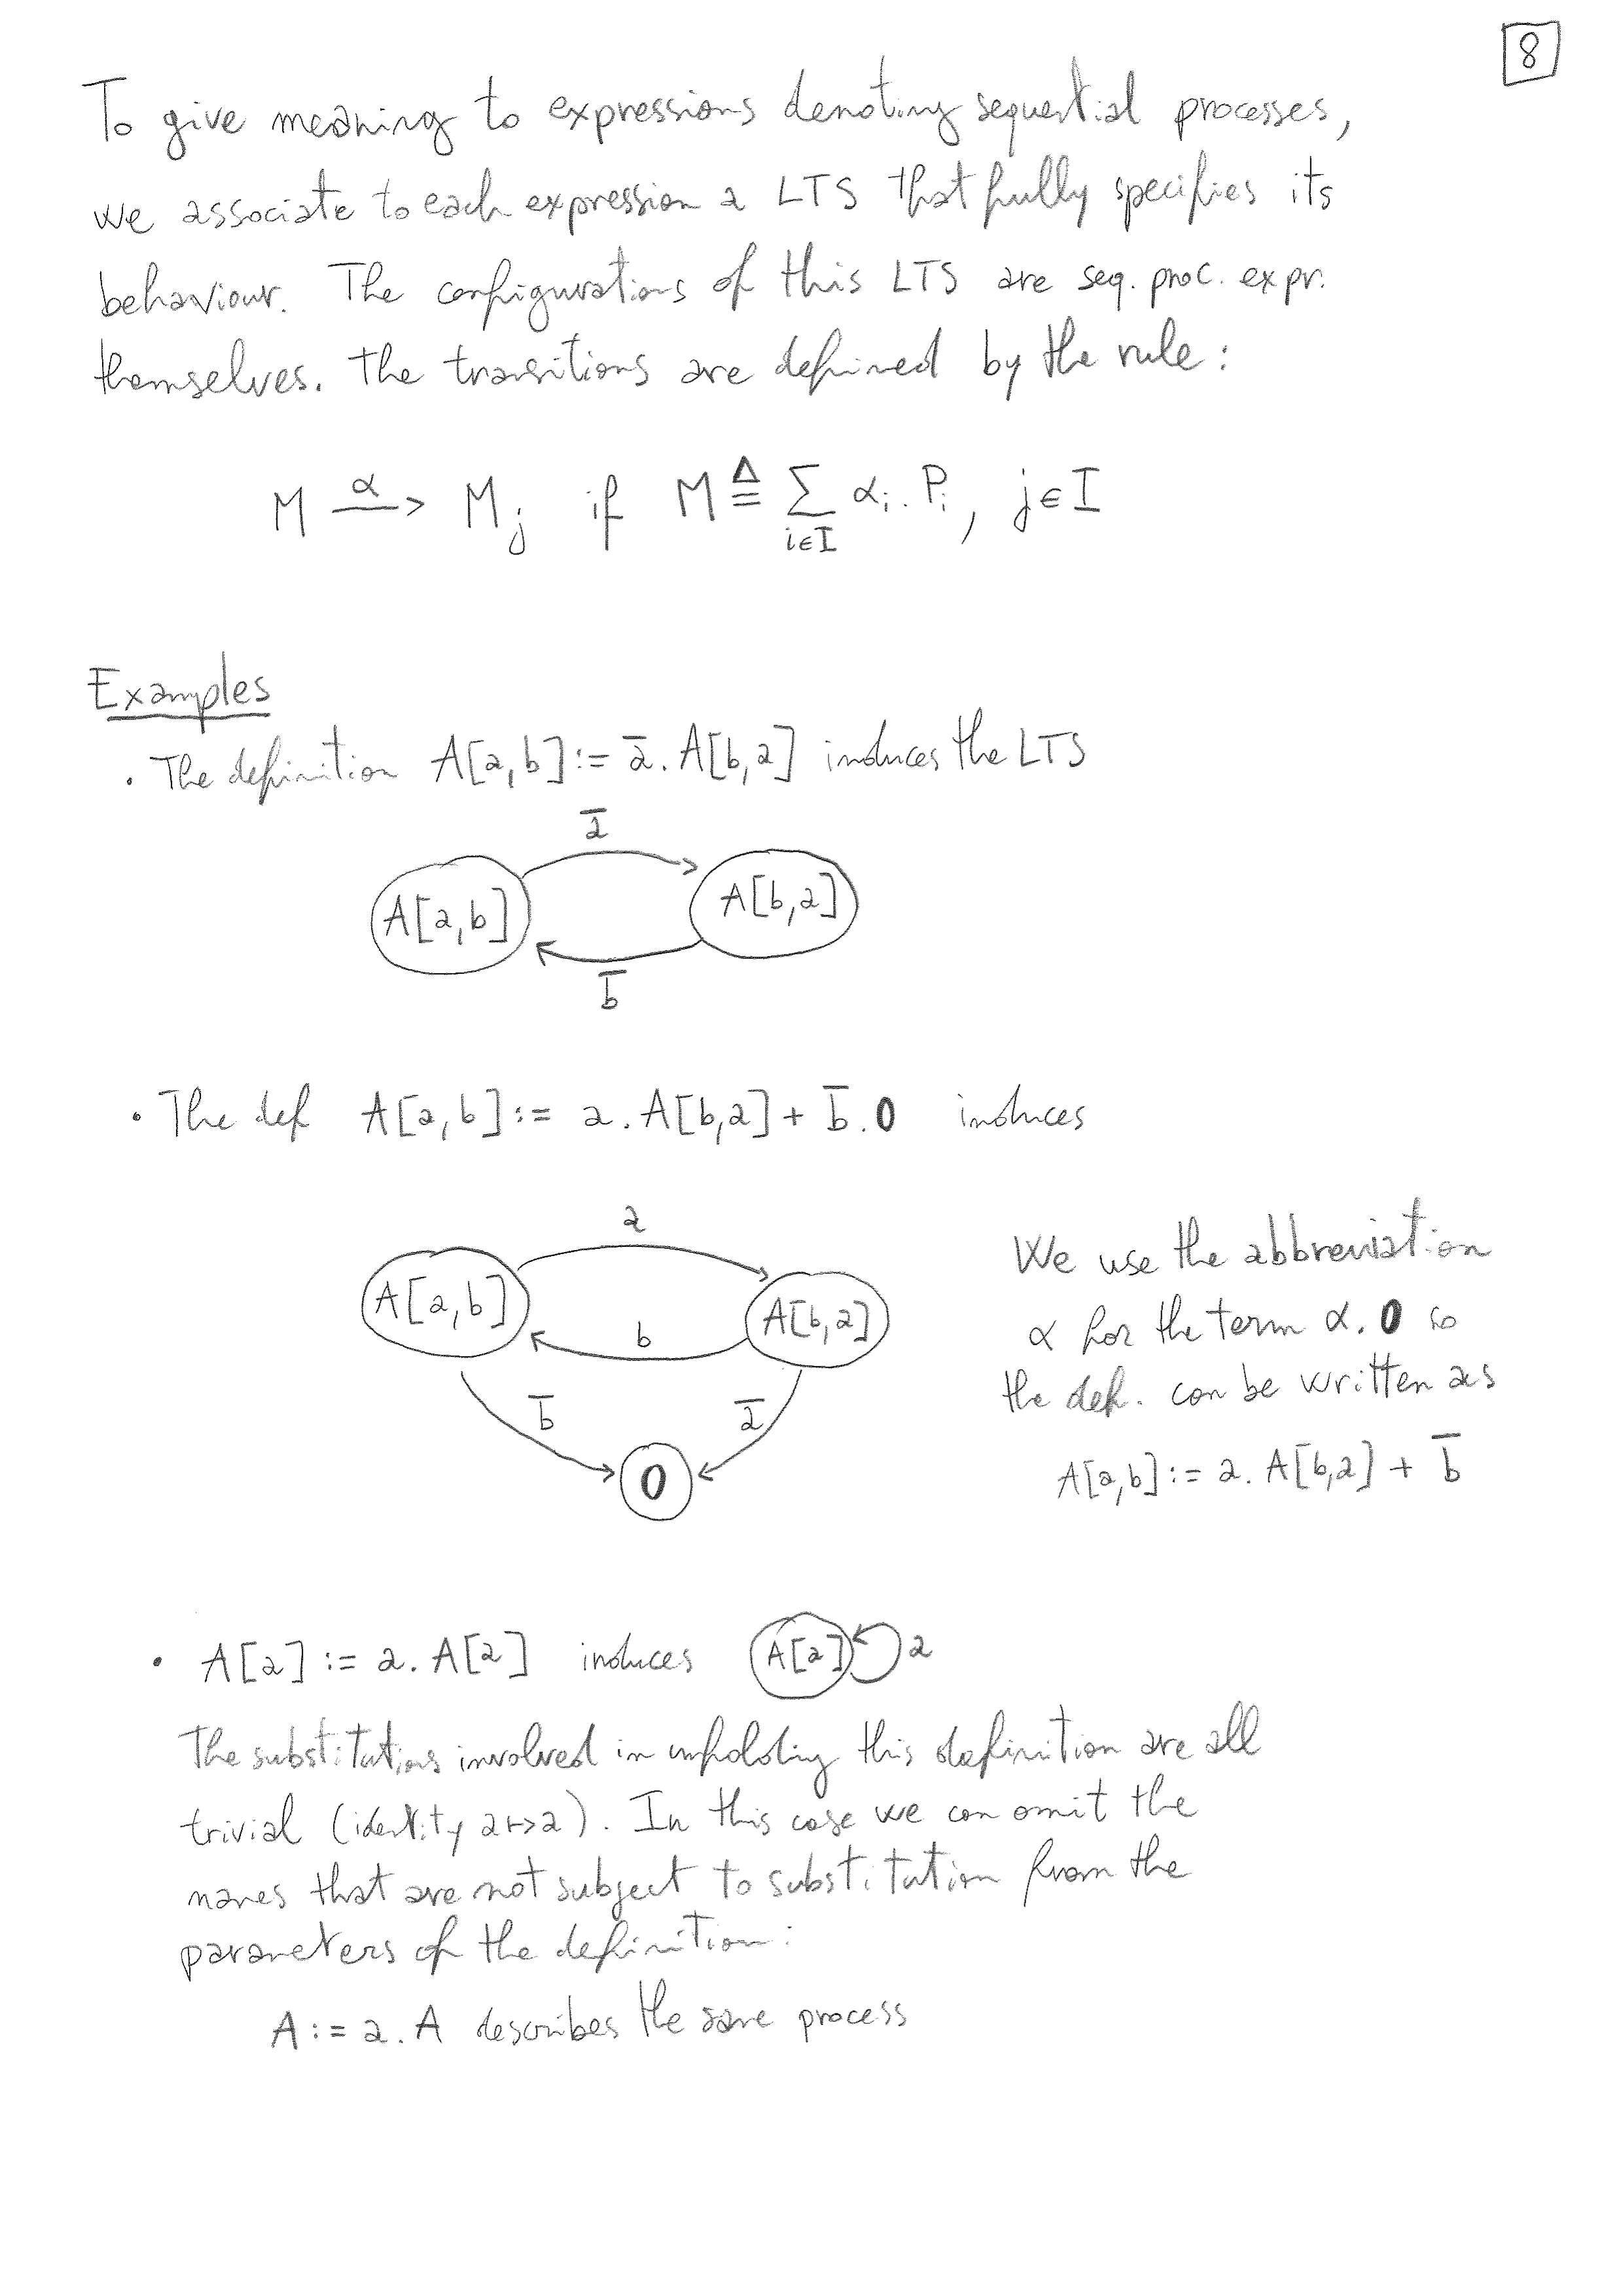 8
To give meaning to expressions denoting sequential processes,
we associate to each expression a LTS that fully specifies its
behaviour. The configurations of this LTS are seq. proc. expr.
themselves. The transitions are defined by the rule:
M —α→ M_j if M ≜ ∑_{i∈I} α_i . P_i, j∈I
Examples
• The definition A[a,b] := a̅. A[b,a] induces the LTS
a̅
A[a,b] A[b,a]
b̅
• The def A[a,b] := a. A[b,a] + b̅. 0 induces
a
A[a,b] A[b,a]
b
b̅ a̅
0
We use the abbreviation
α for the term α. 0 so
the def. can be written as
A[a,b] := a. A[b,a] + b̅
• A[a] := a. A[a] induces A[a] a
The substitutions involved in unfolding this definition are all
trivial (identity a↦a). In this case we can omit the
names that are not subject to substitution from the
parameters of the definition:
A := a. A describes the same process